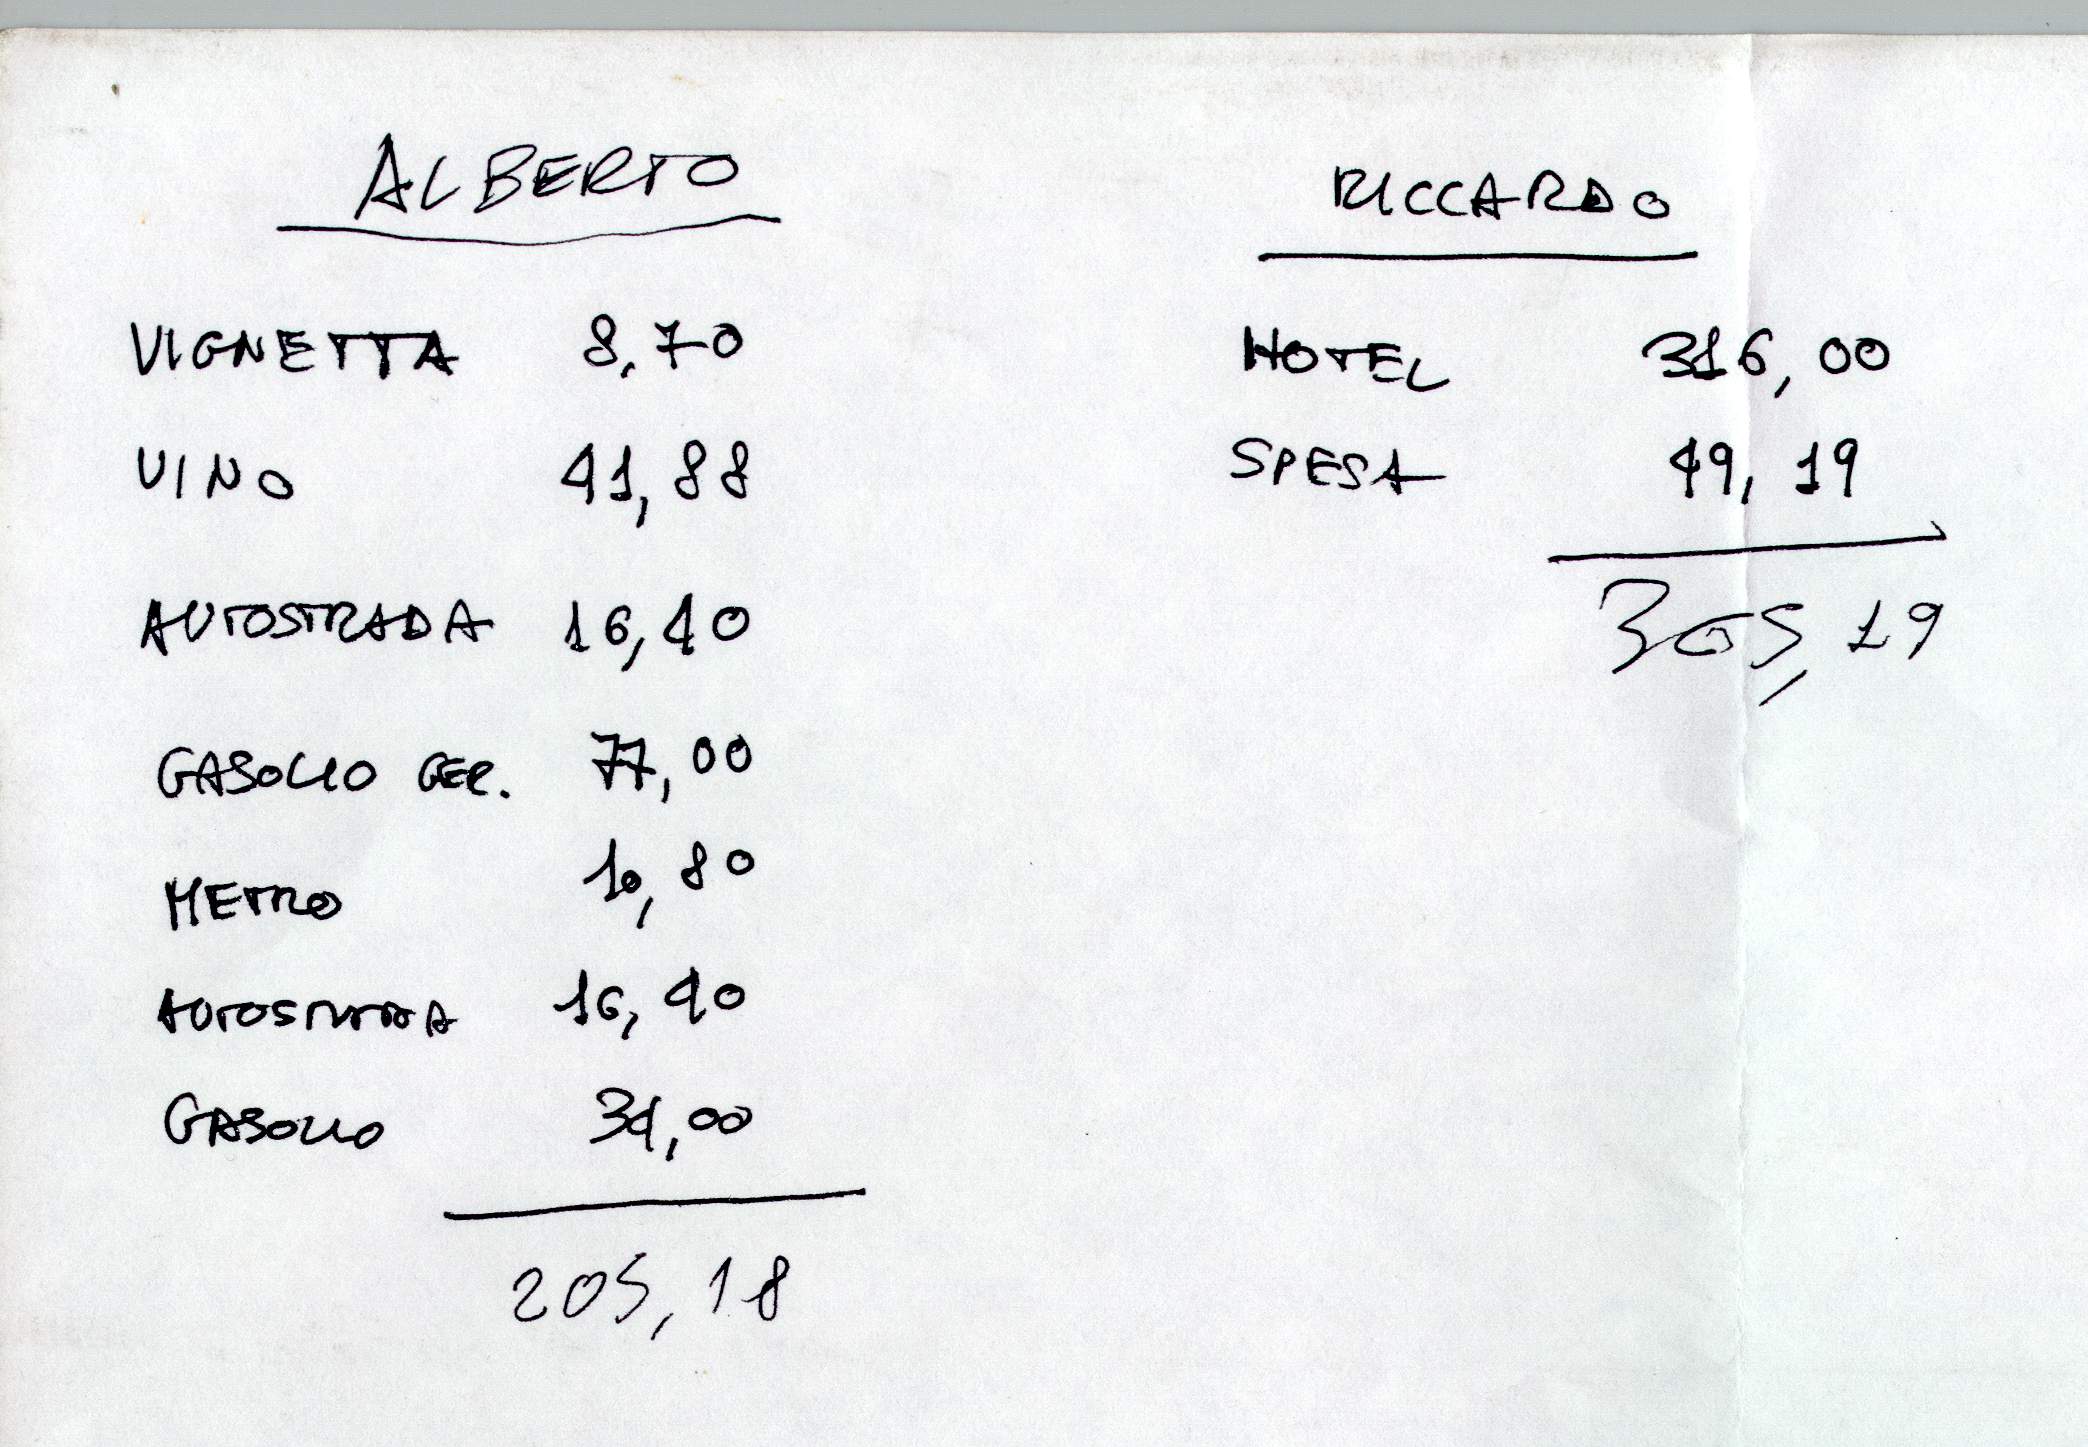 ALBERTO
VIGNETTA 8,70
VINO 41,88
AUTOSTRADA 16,40
GASOLIO GER. 77,00
METRO 10,80
AUTOSTRADA 16,40
GASOLIO 34,00
205,18
RICCARDO
HOTEL 316,00
SPESA 49,19
365,19